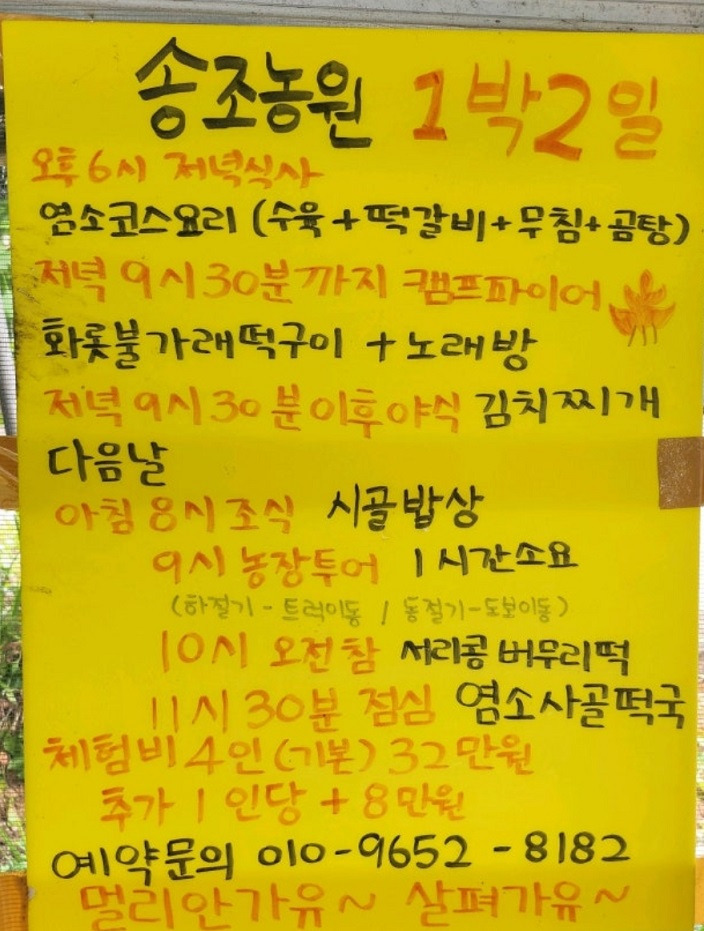 송조농원 1박2일
오후6시 저녁식사
염소코스요리 (수육+떡갈비+무침+곰탕)
저녁 9시30분까지 캠프파이어
화롯불가래떡구이 + 노래방
저녁 9시30분이후야식 김치찌개
다음날
아침 8시 조식 시골밥상
9시 농장투어 1시간소요
(하절기-트럭이동 / 동절기-도보이동)
10시 오전참 서리콩 버무리떡
11시30분 점심 염소사골떡국
체험비4인(기본) 32만원
추가 1인당 + 8만원
예약문의 010-9652-8182
멀리안가유~ 살펴가유~